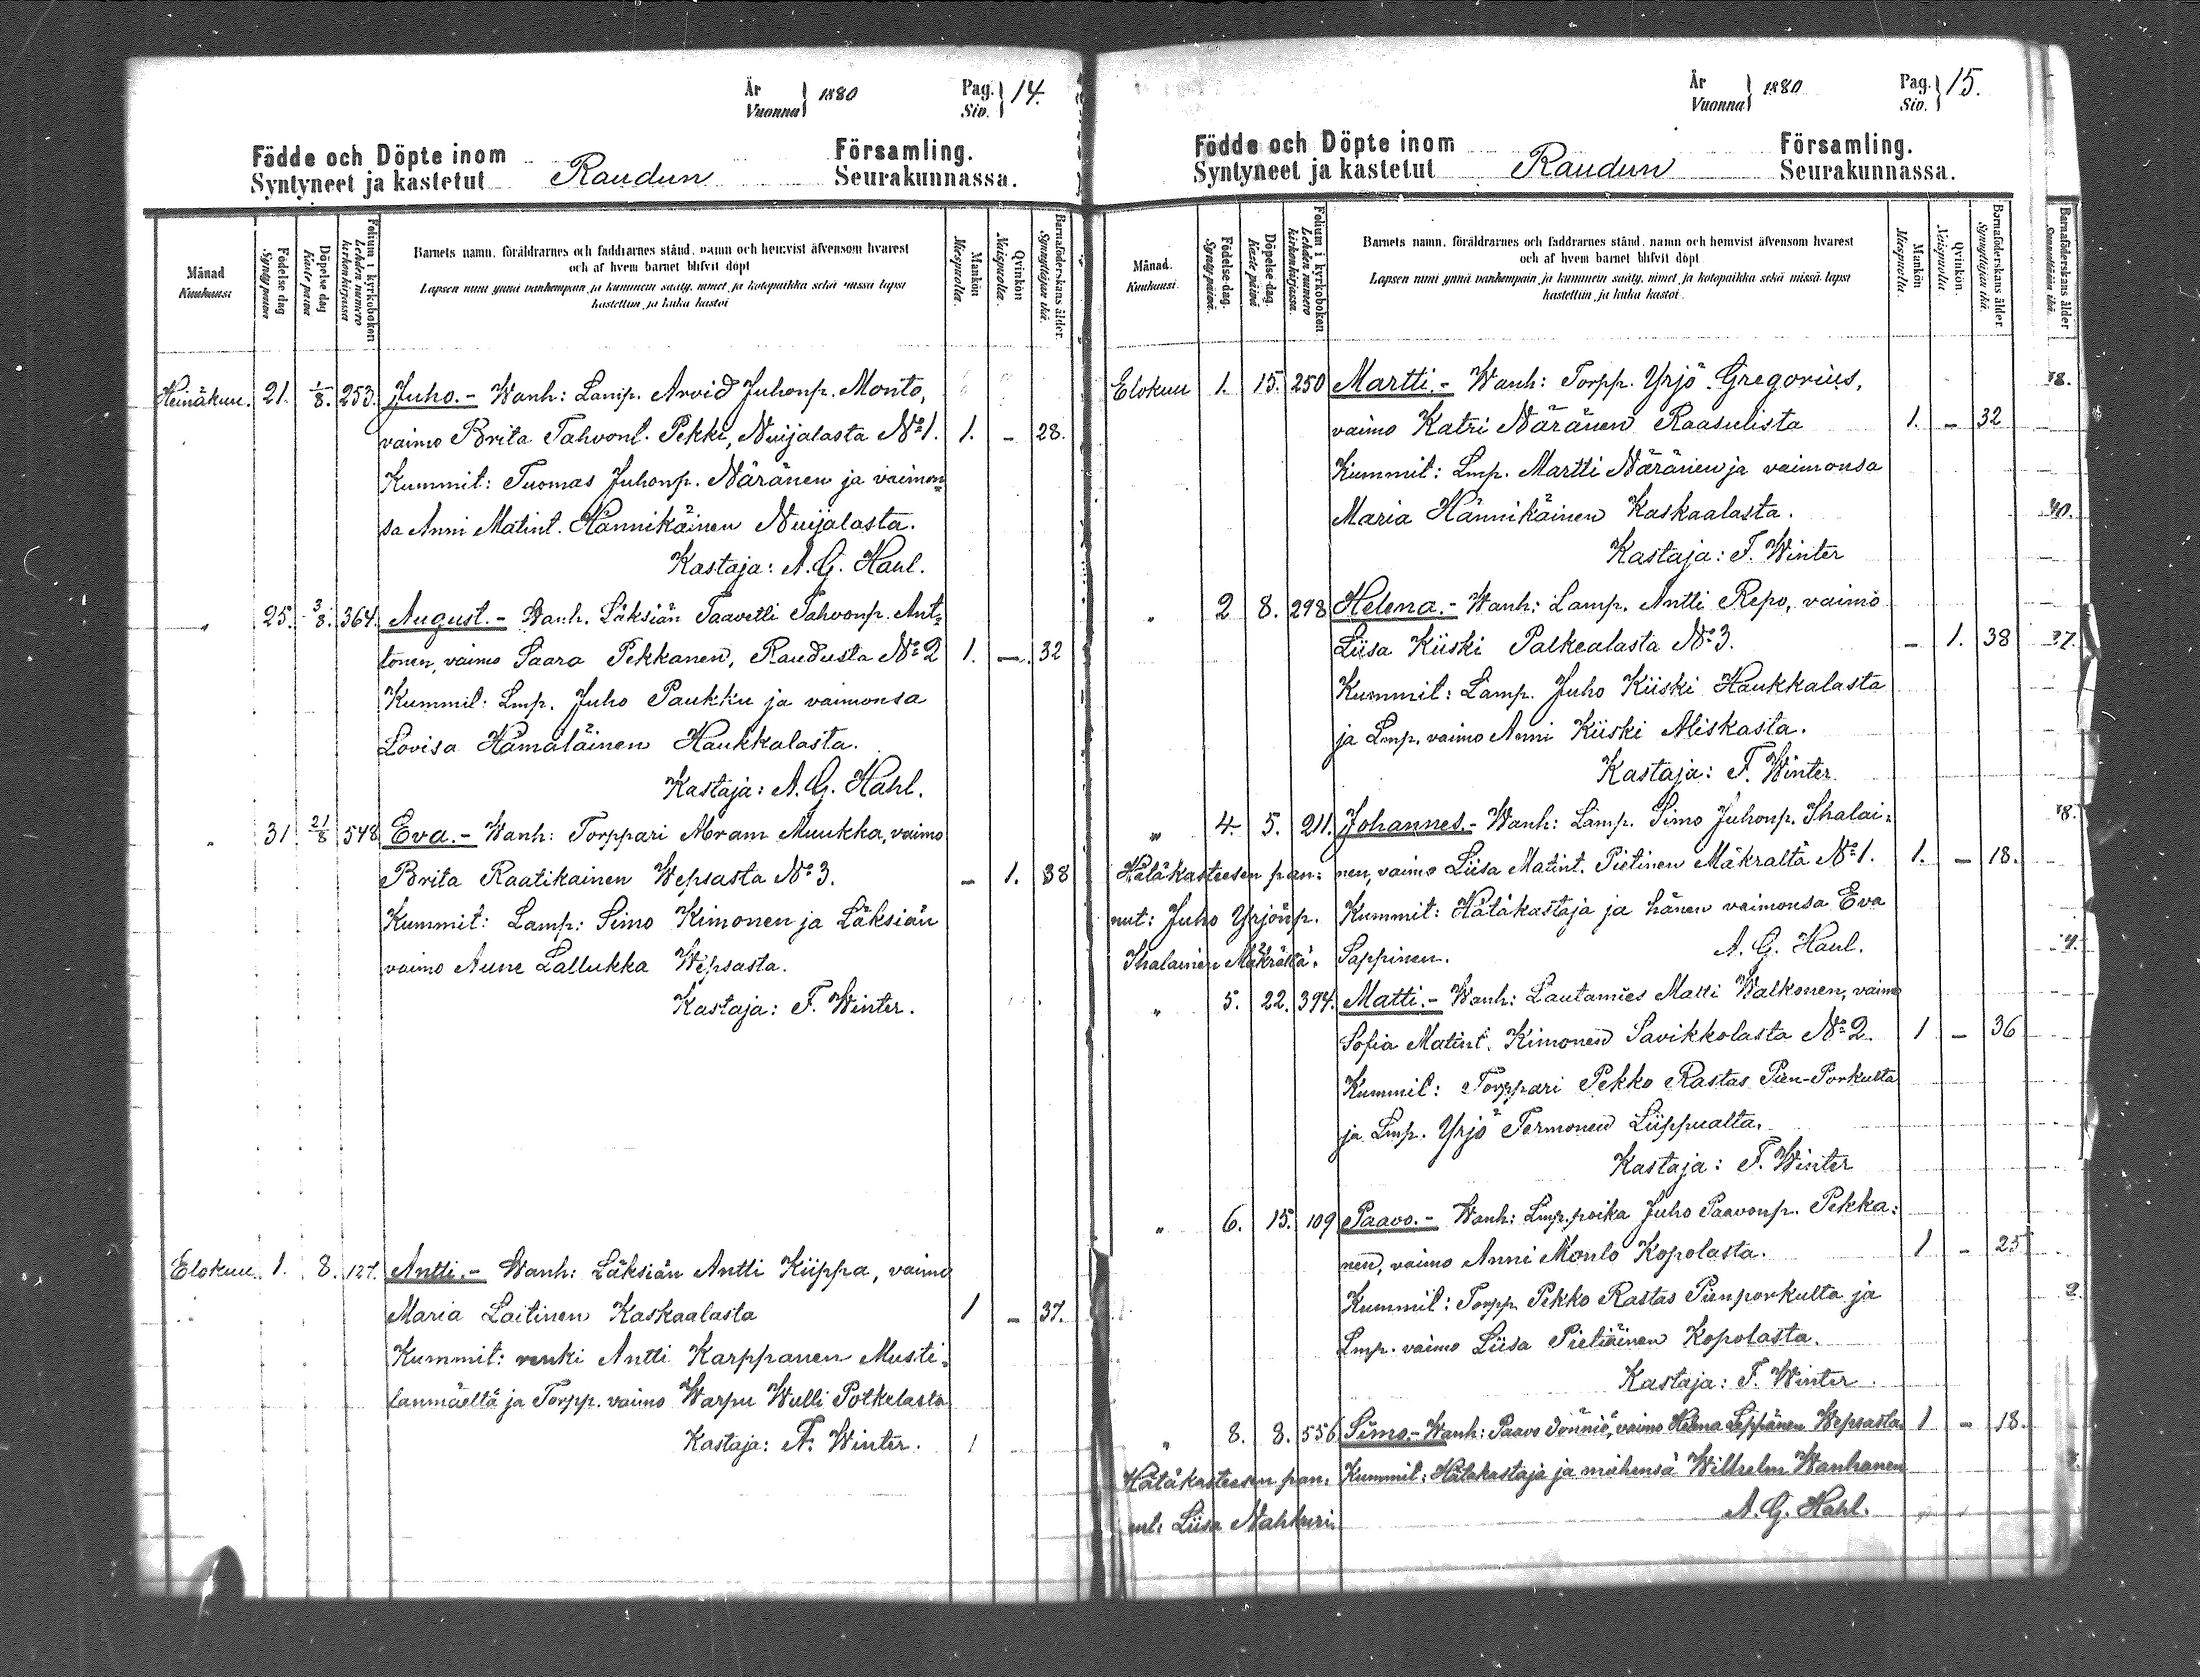 År
Vuonna } 1880
Pag.
Siv. } 14.
Födde och Döpte inom
Syntyneet ja kastetut Raudun
Församling.
Seurakunnassa.
Månad
Kuukausi
Födelse dag
Synty päivä
Döpelse dag
Kaste päivä
Folium i kyrkoboken
Lehden numero kirkonkirjassa
Barnets namn, föräldrarnes och faddrarnes stånd, namn och hemvist äfvensom hvarest
och af hvem barnet blifvit döpt
Lapsen nimi ynnä vanhempain ja kummein sääty, nimet ja kotopaikka sekä missä lapsi
kastettiin ja kuka kastoi
Mankön
Miespuolta.
Qvinkön
Naispuolta.
Barnaföderskans ålder.
Synnyttäjän ikä.
Heinäkuu. 21. 1/8. 253. Juho. - Wanh: Lamp. Arvid Juhonp. Monto,
vaimo Brita Tahvont. Pekki, Nuijalasta No 1. 1. - 28.
Kummit: Tuomas Juhonp. Näränen ja vaimon-
sa Anni Matint. Hännikäinen Nuijalasta.
Kastaja: A. G. Hahl.
" 25. 3/8. 364. August. - Wanh. Läksiän Taavetti Tahvonp. Ant-
tonen, vaimo Saara Pekkanen, Raudusta No 2 1. - 32
Kummit: Lmp. Juho Paukku ja vaimonsa
Lovisa Hämäläinen Haukkalasta.
Kastaja: A. G. Hahl.
" 31 21/8 548 Eva. - Wanh: Torppari Abram Muukka, vaimo
Brita Raatikainen Wepsasta No 3. - 1. 38
Kummit: Lamp: Simo Kimonen ja Läksiän
vaimo Aune Lallukka Wepsasta.
Kastaja: F. Winter.
Elokuu. 1. 8. 127. Antti. - Wanh: Läksiän Antti Kiippa, vaimo
Maria Laitinen Kaskaalasta 1 - 37.
Kummit: renki Antti Karppanen Musti-
lanmäeltä ja Torpp. vaimo Warpu Wulli Potkelasta
Kastaja: F. Winter.
År
Vuonna } 1880
Pag.
Siv. } 15.
Födde och Döpte inom
Syntyneet ja kastetut Raudun
Församling.
Seurakunnassa.
Månad.
Kuukausi.
Födelse-dag.
Synty päivä.
Döpelse-dag.
Kaste päivä
Folium i kyrkoboken
Lehden numero kirkonkirjassa.
Barnets namn, föräldrarnes och faddrarnes stånd, namn och hemvist äfvensom hvarest
och af hvem barnet blifvit döpt
Lapsen nimi ynnä vanhempain ja kummein sääty, nimet ja kotopaikka sekä missä lapsi
kastettiin ja kuka kastoi.
Mankön
Miespuolta.
Qvinkön.
Naispuolta
Barnaföderskans ålder.
Synnyttäjän ikä.
Barnaföderskans ålder
Synnyttäjän ikä.
Elokuu 1. 15. 250 Martti. - Wanh: Torpp. Yrjö Gregorius,
vaimo Katri Näränen Raasulista 1. - 32
Kummit: Lmp. Martti Näränen ja vaimonsa
Maria Hännikäinen Kaskaalasta.
Kastaja: F. Winter
" 2 8. 298 Helena. - Wanh: Lamp. Antti Repo, vaimo
Liisa Kiiski Palkealasta No 3. - 1. 38
Kummit: Lamp. Juho Kiiski Haukkalasta
ja Lmp. vaimo Anni Kiiski Miskasta.
Kastaja: F. Winter.
" 4 5. 211. Johannes. - Wanh: Lamp. Simo Juhonp. Ihalai-
Hätäkasteesen pan- nen, vaimo Liisa Matint. Pietinen Mäkrältä No 1. 1. - 18.
nut: Juho Yrjönp. Kummit: Hätäkastaja ja hänen vaimonsa Eva
Ihalainen Mäkrältä. Sappinen. A. G. Hahl.
" 5. 22. 394. Matti. - Wanh: Lautamies Matti Walkonen, vaimo
Sofia Matint. Kimonen Savikkolasta No 2. 1 - 36
Kummit: Torppari Pekko Rastas Pien-Porkulta
ja Lmp. Yrjö Termonen Liippualta.
Kastaja: F. Winter
" 6. 15. 109 Paavo. - Wanh: Lmp. poika Juho Paavonp. Pekka-
nen, vaimo Anni Monto Kopolasta. 1 - 25
Kummit: Torpp Pekko Rastas Pienporkulta ja
Lmp. vaimo Liisa Pietiäinen Kopolasta.
Kastaja: F. Winter.
" 8. 8. 556 Simo. - Wanh: Paavo Jönniö, vaimo Helena Leppänen Wepsasta 1 - 18.
Hätäkasteesen pan- Kummit: Hätäkastaja ja miehensä Wilhelm Wanhanen
nut: Liisa Nahkuri. A. G. Hahl.